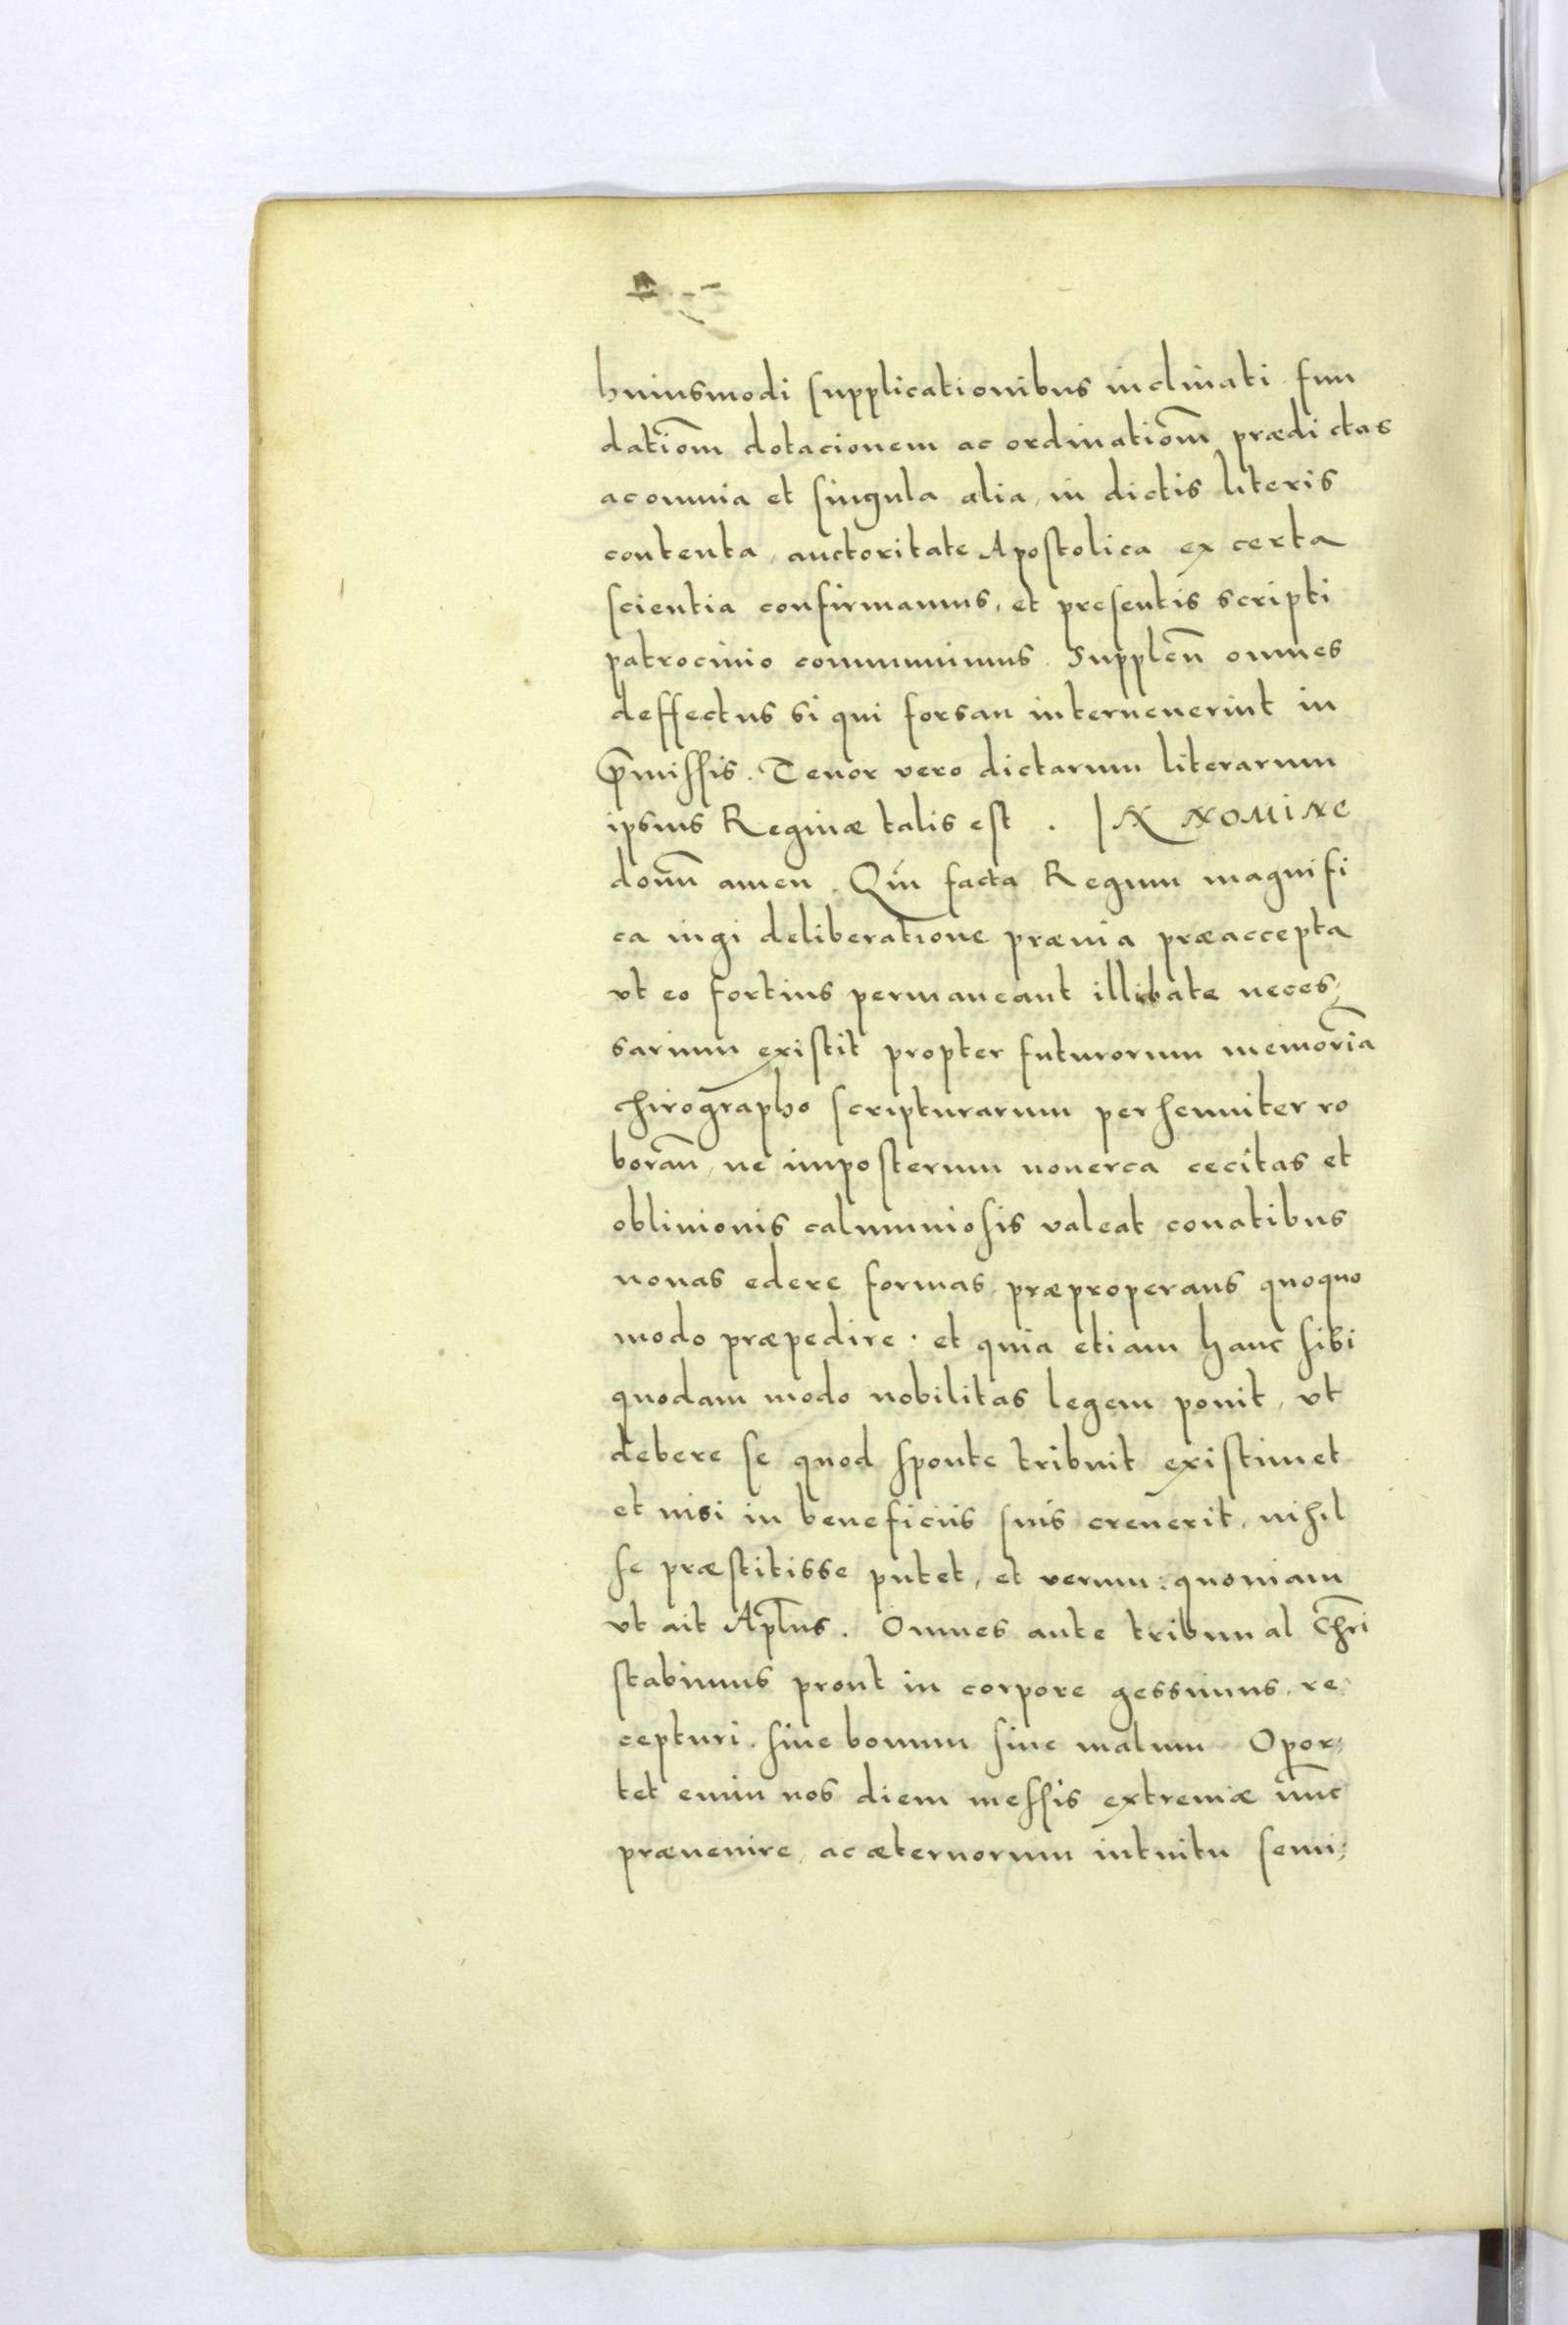 huiusmodi supplicationibus inclinati fun
datiom̅ dotacionem ac ordinatiom̅ prædictas
ac omnia et singula alia, in dictis literis
contenta, auctoritate Apostolica ex certa
scientia confirmamus, et presentis scripti
patrocinio communimus. Supplen̅ omnes
deffectus si qui forsan interuenerint in
p̅missis. Tenor vero dictarum literarum
ipsius Reginæ talis est . IN NOMINE
domn̅ amen. Qm̅ facta Regum magnifi
ca iugi deliberatione præuia præaccepta
vt eo fortius permaneant illibate neces,
sarium existit propter futurorum memoria̅
chirographo scripturarum perhenniter ro
boran̅, ne imposterum nouerca cecitas et
obliuionis calumniosis valeat conatibus
nouas edere formas, præproperans quoquo
modo præpedire · et quia etiam hanc sibi
quodam modo nobilitas legem ponit, vt
debere se quod sponte tribuit existimet
et nisi in beneficiis suis creuerit, nihil
se præstitisse putet, et verum: quoniam
vt ait Aplu̅s. Omnes ante tribunal Chr̅i
stabimus prout in corpore gessimus, re,
cepturi. siue bonum siue malum Opor,
tet enim nos diem messis extremæ nunc
præuenire, ac æternorum intuitu semi,